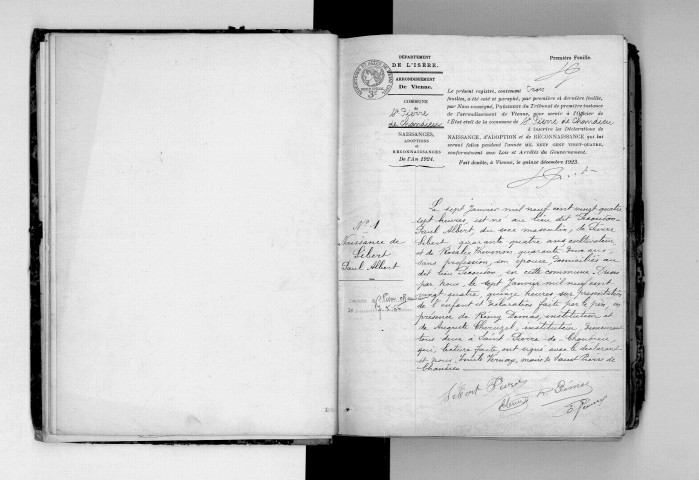 DÉPARTEMENT
DE L'ISÈRE.
ARRONDISSEMENT
De Vienne.
COMMUNE
de
St Pierre
de Chandieu
NAISSANCES,
ADOPTIONS
et
RECONNAISSANCES
De l'An 1924.
Première Feuille.
Le présent registre, contenant trois
feuilles, a été coté et paraphé, par première et dernière feuille,
par Nous soussigné, Président du Tribunal de première instance
de l'arrondissement de Vienne, pour servir à l'Officier de
l'État civil de la commune de St Pierre de Chandieu
à inscrire les Déclarations de
NAISSANCE, d'ADOPTION et de RECONNAISSANCE qui lui
seront faites pendant l'année MIL NEUF CENT VINGT-QUATRE,
conformément aux Lois et Arrêtés du Gouvernement.
Fait double, à Vienne, le quinze décembre 1923.
N° 1
Naissance de
Sibert
Paul Albert
Le sept Janvier mil neuf cent vingt quatre
sept heures, est né au lieu dit
Paul Albert, du sexe masculin, de Pierre
Sibert quarante quatre ans cultivateur
et de Rosalie quarante deux ans,
sans profession, son épouse domiciliés au
dit lieu en cette commune. Dressé
par nous, le sept Janvier mil neuf cent
vingt quatre, quinze heures, sur présentation
de l'enfant et déclaration faite par le père, en
présence de Rémy Damas, instituteur et
de Auguste instituteur, demeurant
tous deux à Saint Pierre de Chandieu
qui, lecture faite, ont signé avec le déclarant
et nous, Vernay, maire de Saint Pierre de
Chandieu
Sibert Pierre